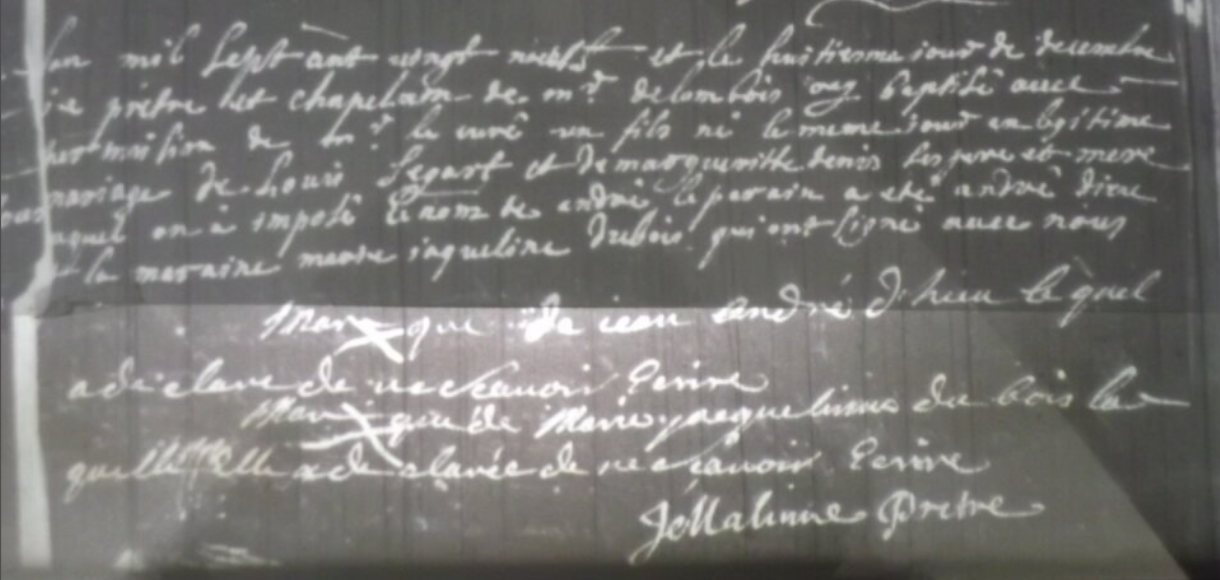 lan mil sept ànt vingt neuf et le huitiesme iour de decembre
ie prêtre et chapelain de mr delombois ay baptisé avec
permission de mr le curé un fils né le meme iour en legitime
mariage de Louis Legart et de margueritte denis ses pere et mere
auquel on a imposé le nom de andré le parain a eté andré dieu
et la maraine marie iaqueline dubois qui ont signé avec nous
Marque de iean andré d'hieu le quel
a declare de ne scavoir Ecrire
Marque de Marie jacquelinne du bois la
quelle Elle a declarée de ne scavoir Ecrire
Pretre